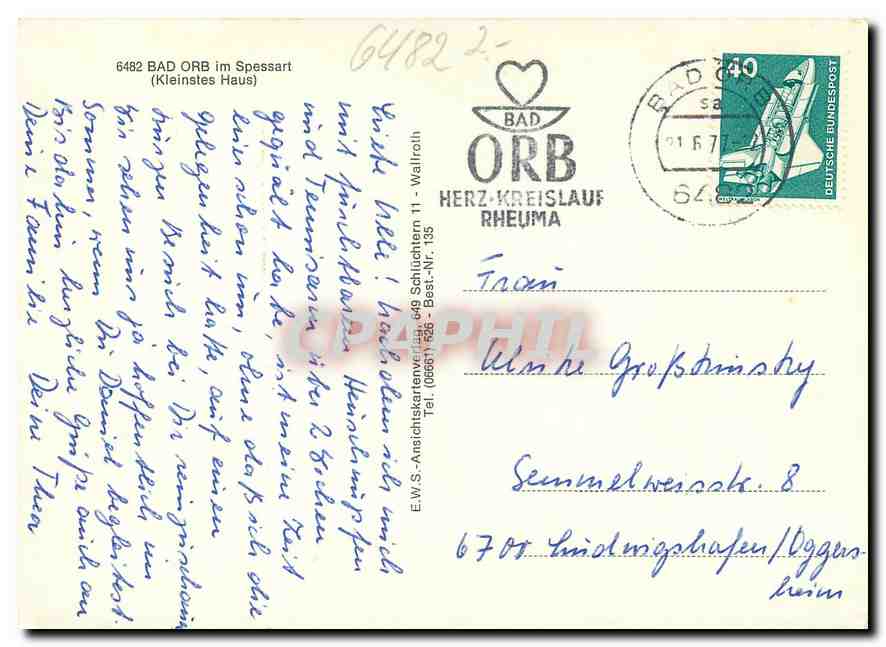 6482 BAD ORB im Spessart
(Kleinstes Haus)
6482 2.-
BAD
ORB
HERZ-KREISLAUF
RHEUMA
BAD ORB
sa
21.6.77
6482
40
DEUTSCHE BUNDESPOST
Liebe Ulli! Nachdem ich mich
mit furchtbarem Heuschnupfen
und Tennisarm über 2 Wochen
gequält habe ist meine Zeit
hier schon um, ohne daß ich die
Gelegenheit hatte, auf einen
kurzen Besuch bei Dir reinzuschauen
Wir sehen uns ja hoffentlich im
Sommer, wenn Du Daniel begleitest.
Bis dahin herzliche Grüße auch an
Deine Familie Deine Thea
E.W.S.-Ansichtskartenverlag, 649 Schlüchtern 11 - Wallroth
Tel. (06661) 526 - Best.-Nr. 135
CPAPHIL
Frau
Ulrike
Semmelweisstr. 8
6700 Ludwigshafen/Oggers-
heim